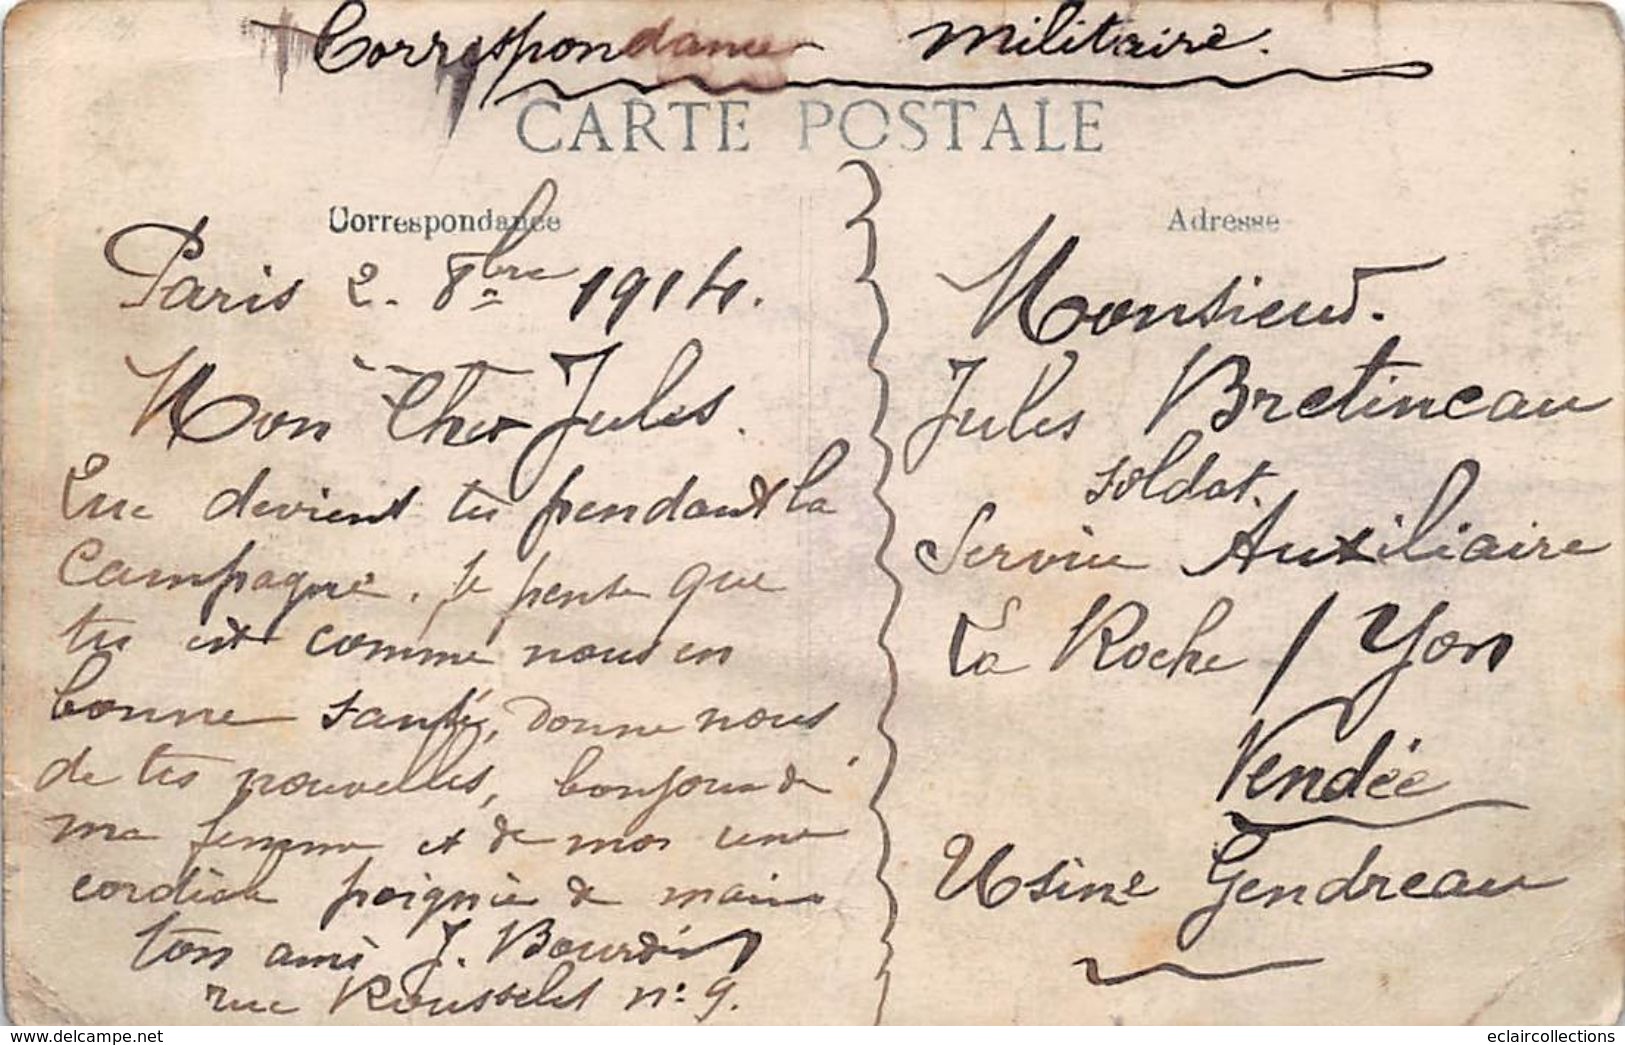 Correspondance militaire.
CARTE POSTALE
Correspondance
Paris 2. 8bre 1914.
Mon Cher Jules.
Que devient tu pendant la
Campagne. Je pense que
tu est comme nous en
bonne santé, donne nous
de tes nouvelles, bonjour de
ma femme et de moi une
cordiale poignée de main
ton ami J. Bourdin
rue Rousselet n° 9.
Adresse
Monsieur.
Jules Bretineau
soldat.
Service Auxiliaire
La Roche / Yon
Vendée
Usine Gendreau
www.delcampe.net
eclaircollections